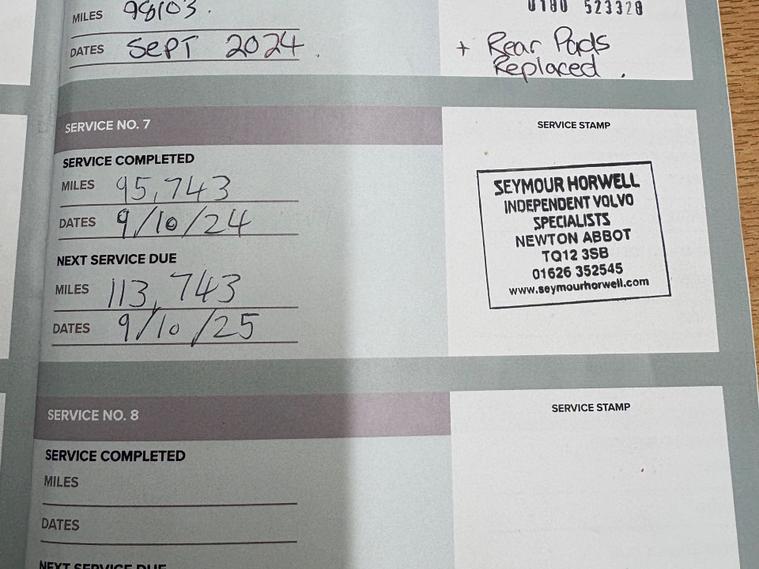 MILES 98103.
DATES SEPT 2024.
0180 523320
+ Rear Pads
Replaced.
SERVICE NO. 7
SERVICE COMPLETED
MILES 95,743
DATES 9/10/24
NEXT SERVICE DUE
MILES 113,743
DATES 9/10/25
SERVICE STAMP
SEYMOUR HORWELL
INDEPENDENT VOLVO
SPECIALISTS
NEWTON ABBOT
TQ12 3SB
01626 352545
www.seymourhorwell.com
SERVICE NO. 8
SERVICE COMPLETED
MILES
DATES
NEXT SERVICE DUE
SERVICE STAMP